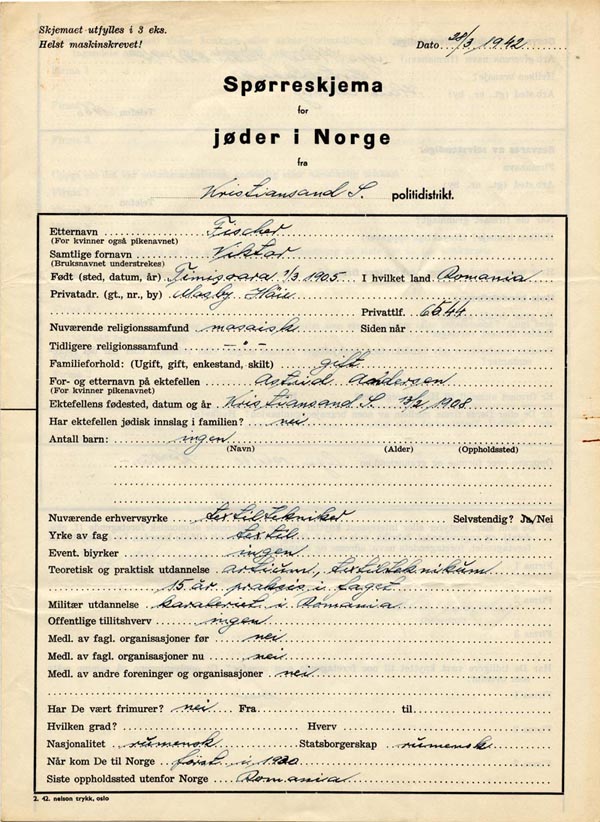 Skjemaet utfylles i 3 eks.
Helst maskinskrevet!
Dato 28/3 1942
Spørreskjema
for
jøder i Norge
fra
Kristiansand S. politidistrikt.
Etternavn Fischer
(For kvinner også pikenavnet)
Samtlige fornavn Viktor
(Bruksnavnet understrekes)
Født (sted, datum, år) Timisoara 1/3 1905 I hvilket land Romania
Privatadr. (gt., nr., by) Mosby Høie
Privattlf. 6544
Nuværende religionssamfund mosaisk Siden når
Tidligere religionssamfund —"—
Familieforhold: (Ugift, gift, enkestand, skilt) gift
For- og etternavn på ektefellen Astrid Andersen
(For kvinner pikenavnet)
Ektefellens fødested, datum og år Kristiansand S. 13/2 1908
Har ektefellen jødisk innslag i familien? nei
Antall barn: ingen
(Navn) (Alder) (Oppholdssted)
Nuværende erhvervsyrke textiltekniker Selvstendig? Ja/Nei
Yrke av fag textil
Event. biyrker ingen
Teoretisk og praktisk utdannelse artium, textilteknikum
15 år praksis i faget
Militær utdannelse kavaleriet i Romania
Offentlige tillitshverv ingen
Medl. av fagl. organisasjoner før nei
Medl. av fagl. organisasjoner nu nei
Medl. av andre foreninger og organisasjoner nei
Har De vært frimurer? nei Fra til
Hvilken grad? Hverv
Nasjonalitet rumensk Statsborgerskap rumensk
Når kom De til Norge først i 1930
Siste oppholdssted utenfor Norge Romania
2. 42. nelson trykk, oslo